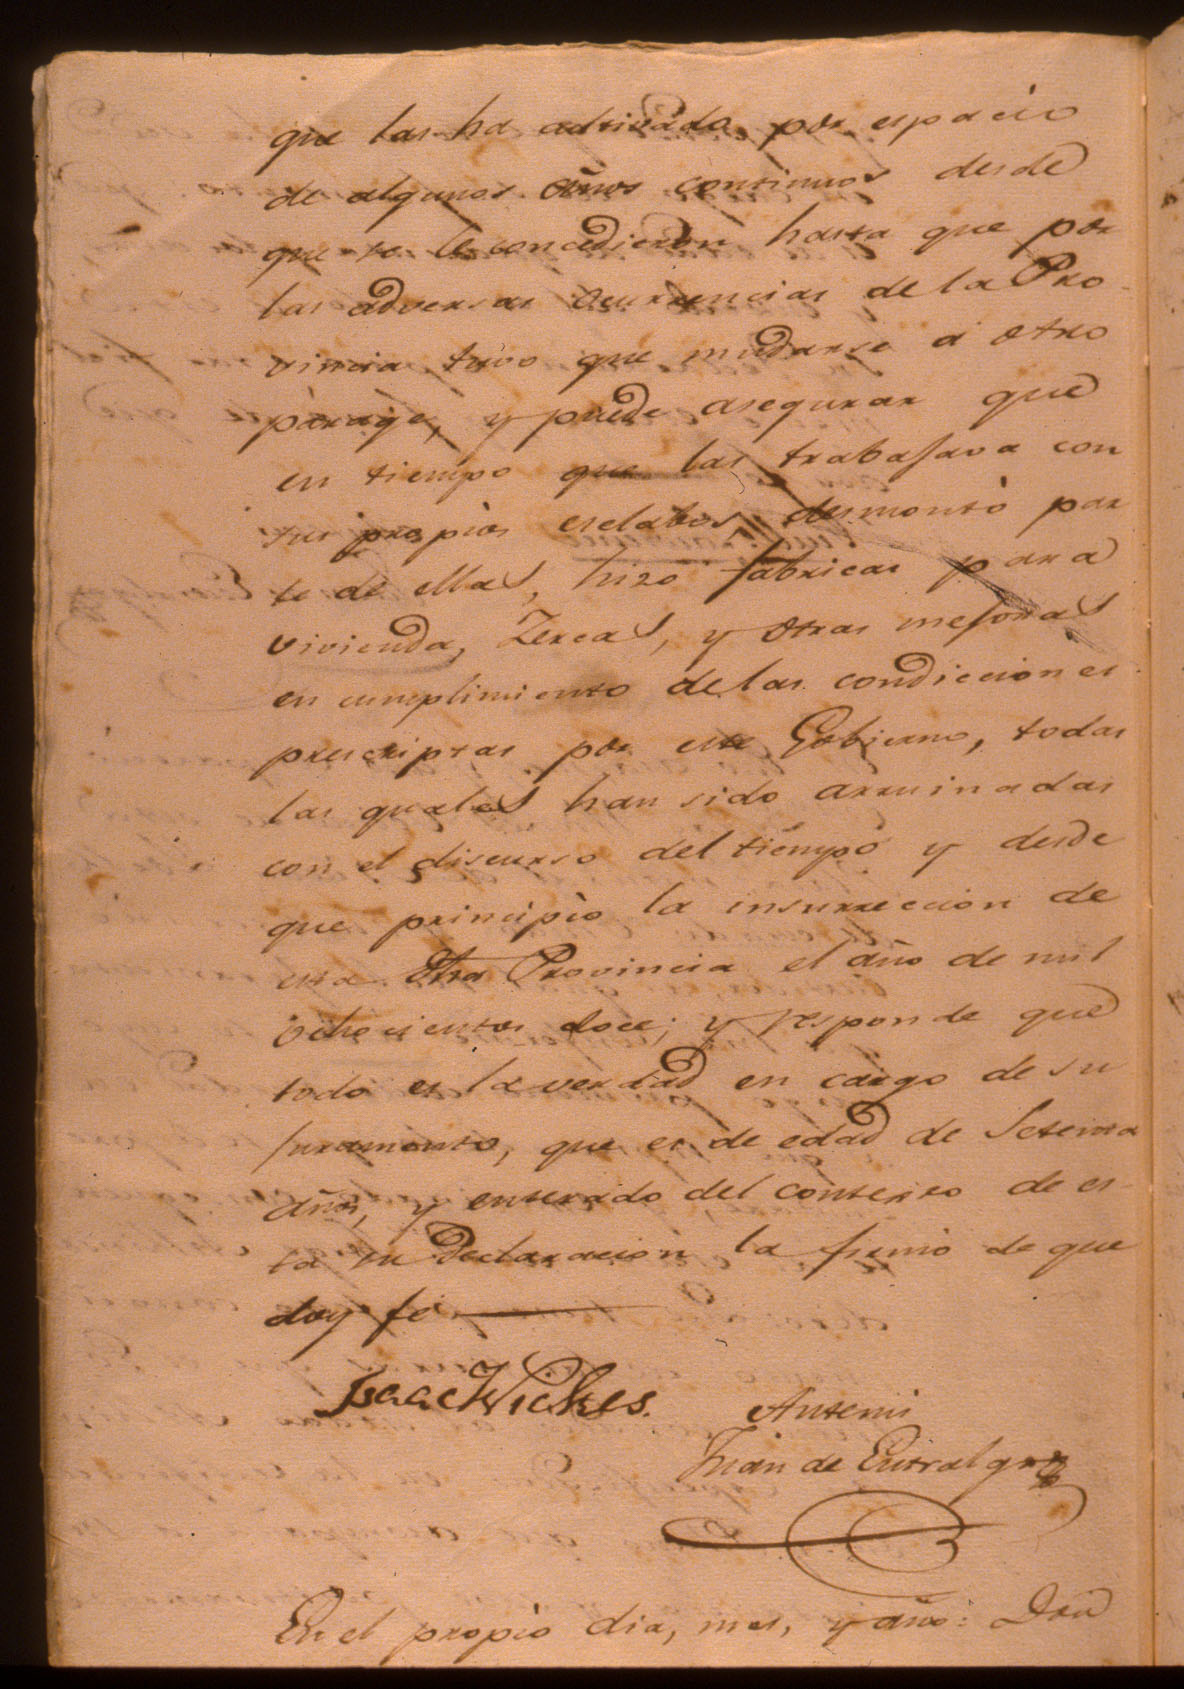 que las ha cultivado por espacio
de algunos años continuos desde
que se le concedieron hasta que por
las adversas ocurrencias de la Pro-
vincia tuvo que mudarse á otro
parage, y puede asegurar que
en tiempo que las trabajava con
sus propios esclabos desmontó par
te de ellas, hizo fabricas para
vivienda, Zercas, y otras mejoras
en cumplimiento de las condicciones
prescriptas por este Gobierno, todas
las quales han sido arruinadas
con el discurso del tiempo y desde
que principio la insurreccion de
esta Otra Provincia el año de mil
ochocientos doce; y responde que
todo es la verdad en cargo de su
juramento, que es de edad de Setenta
años, y enterado del contexto de es-
ta su Declaracion la firmó de que
doy fé
Isaac Wickes.
Antemi
Juan de Entralgo
En el propio dia, mes, y año: Dn